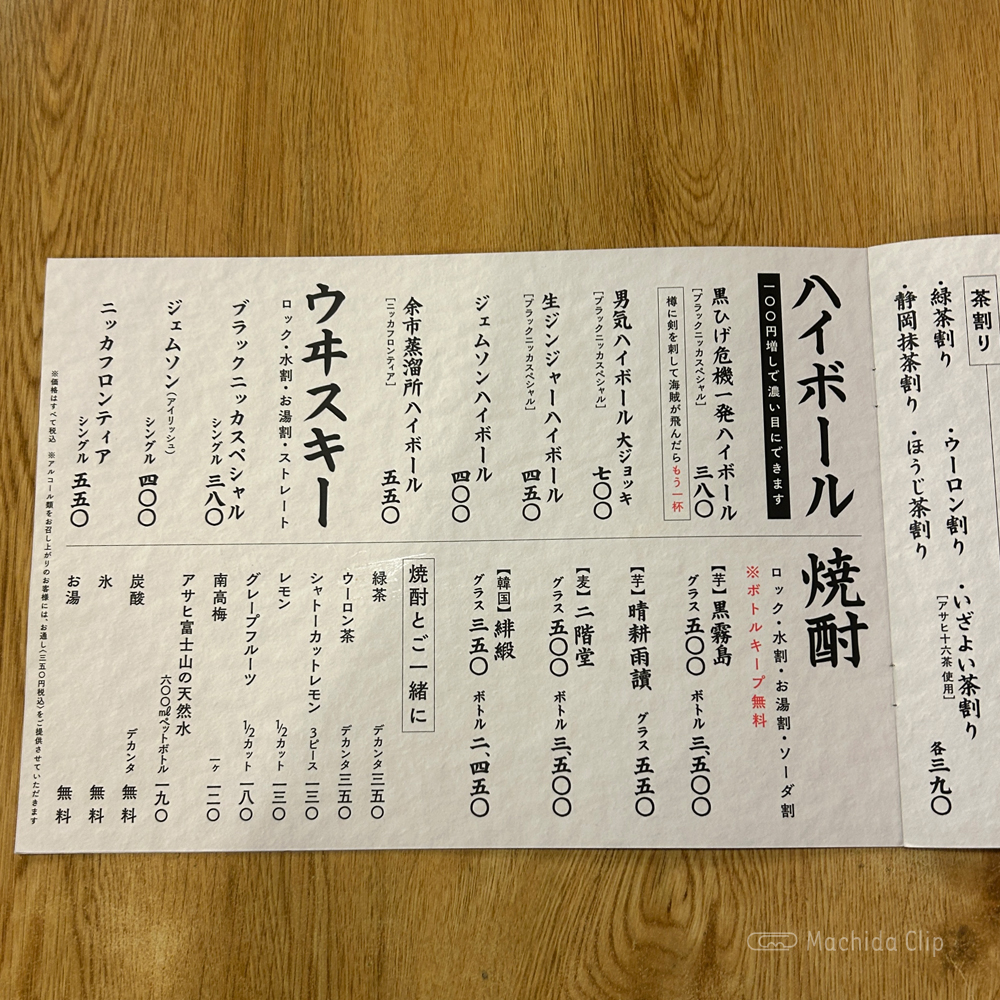 茶割り
・緑茶割り ・ウーロン割り ・いざよい茶割り
[アサヒ十六茶 使用]
・静岡抹茶割り ・ほうじ茶割り
各三九〇
ハイボール
一〇〇円増しで濃い目にできます
黒ひげ危機一発ハイボール
[ブラックニッカスペシャル]
三八〇
樽に剣を刺して海賊が飛んだらもう一杯
男気ハイボール 大ジョッキ
[ブラックニッカスペシャル]
七〇〇
生ジンジャーハイボール
[ブラックニッカスペシャル]
四五〇
ジェムソンハイボール
四〇〇
余市蒸溜所ハイボール
[ニッカフロンティア]
五五〇
ウヰスキー
ロック・水割・お湯割・ストレート
ブラックニッカスペシャル
シングル 三八〇
ジェムソン(アイリッシュ)
シングル 四〇〇
ニッカフロンティア
シングル 五五〇
焼酎
ロック・水割・お湯割・ソーダ割
※ボトルキープ無料
【芋】黒霧島
グラス 五〇〇 ボトル 三、五〇〇
【芋】晴耕雨讀
グラス 五五〇
【麦】二階堂
グラス 五〇〇 ボトル 三、五〇〇
【韓国】緋緞
グラス 三五〇 ボトル 二、四五〇
焼酎とご一緒に
緑茶 デカンタ 三五〇
ウーロン茶 デカンタ 三五〇
シャトーカットレモン 3ピース 一三〇
レモン 1/2カット 一三〇
グレープフルーツ 1/2カット 一八〇
南高梅 一ヶ 一二〇
アサヒ富士山の天然水
六〇〇mlペットボトル 一九〇
炭酸 デカンタ 無料
氷 無料
お湯 無料
※価格はすべて税込 ※アルコール類をお召し上がりのお客様には、お通し(三五〇円税込)をご提供させていただきます
Machida Clip